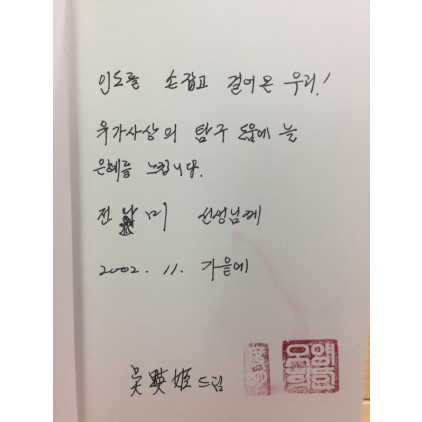 인도를 손잡고 걸어온 우리!
유가사상의 탐구 도움에 늘
은혜를 느낍니다.
전 미 선생님께
2002. 11. 가을에
吳暎姬 드림